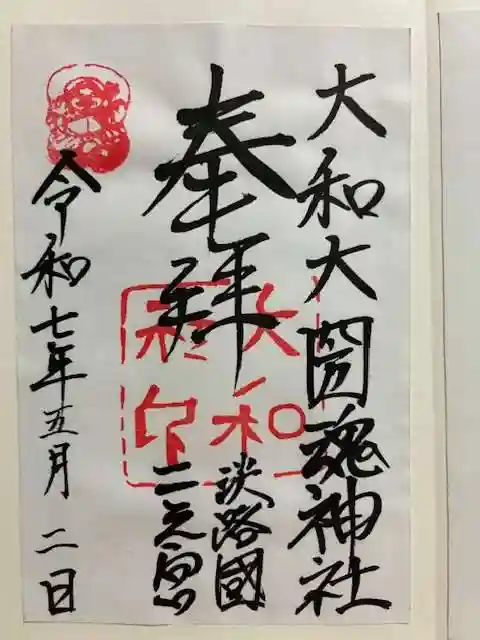 大和大圀魂神社
奉拜
淡路國
二之宮
令和七年五月二日
大和社印